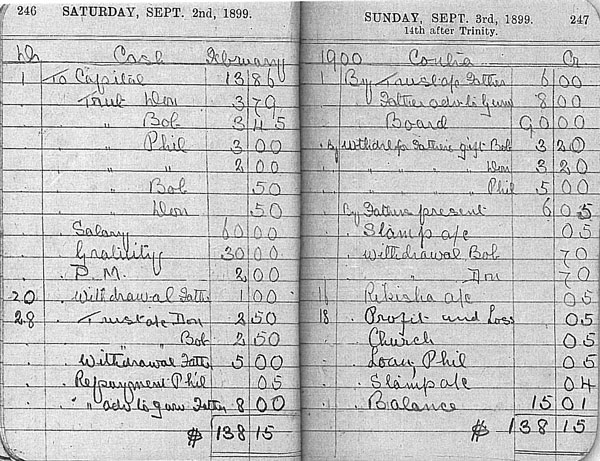 246 SATURDAY, SEPT. 2nd, 1899.
Dr Cash February
1 To Capital 13 86
" Trust Don 3 79
" " Bob 3 45
" " Phil 3 00
" " " 2 00
" " Bob 50
" " Don 50
" Salary 60 00
" Gratility 30 00
" P.M. 2 00
20 " Withdrawal Father 1 00
28 " Trust a/c Don 2 50
" " Bob 2 50
" Withdrawal Father 5 00
" Repayment Phil 05
" " adv to gum Father 8 00
$ 138 15
SUNDAY, SEPT. 3rd, 1899. 247
14th after Trinity.
1900 Contra Cr
1 By Trust a/c Father 6 00
" Father adv to gum 8 00
" Board 90 00
" By withdr for Father's gift Bob 3 20
" " " " Don 3 20
" " " " Phil 5 00
" By Father's present 6 05
" Stamp a/c 05
" Withdrawal Bob 70
" " Don 70
16 " Rikisha a/c 05
18 " Profit and Loss 05
" Church 05
" Loan, Phil 05
" Stamp a/c 04
" Balance 15 01
$ 138 15